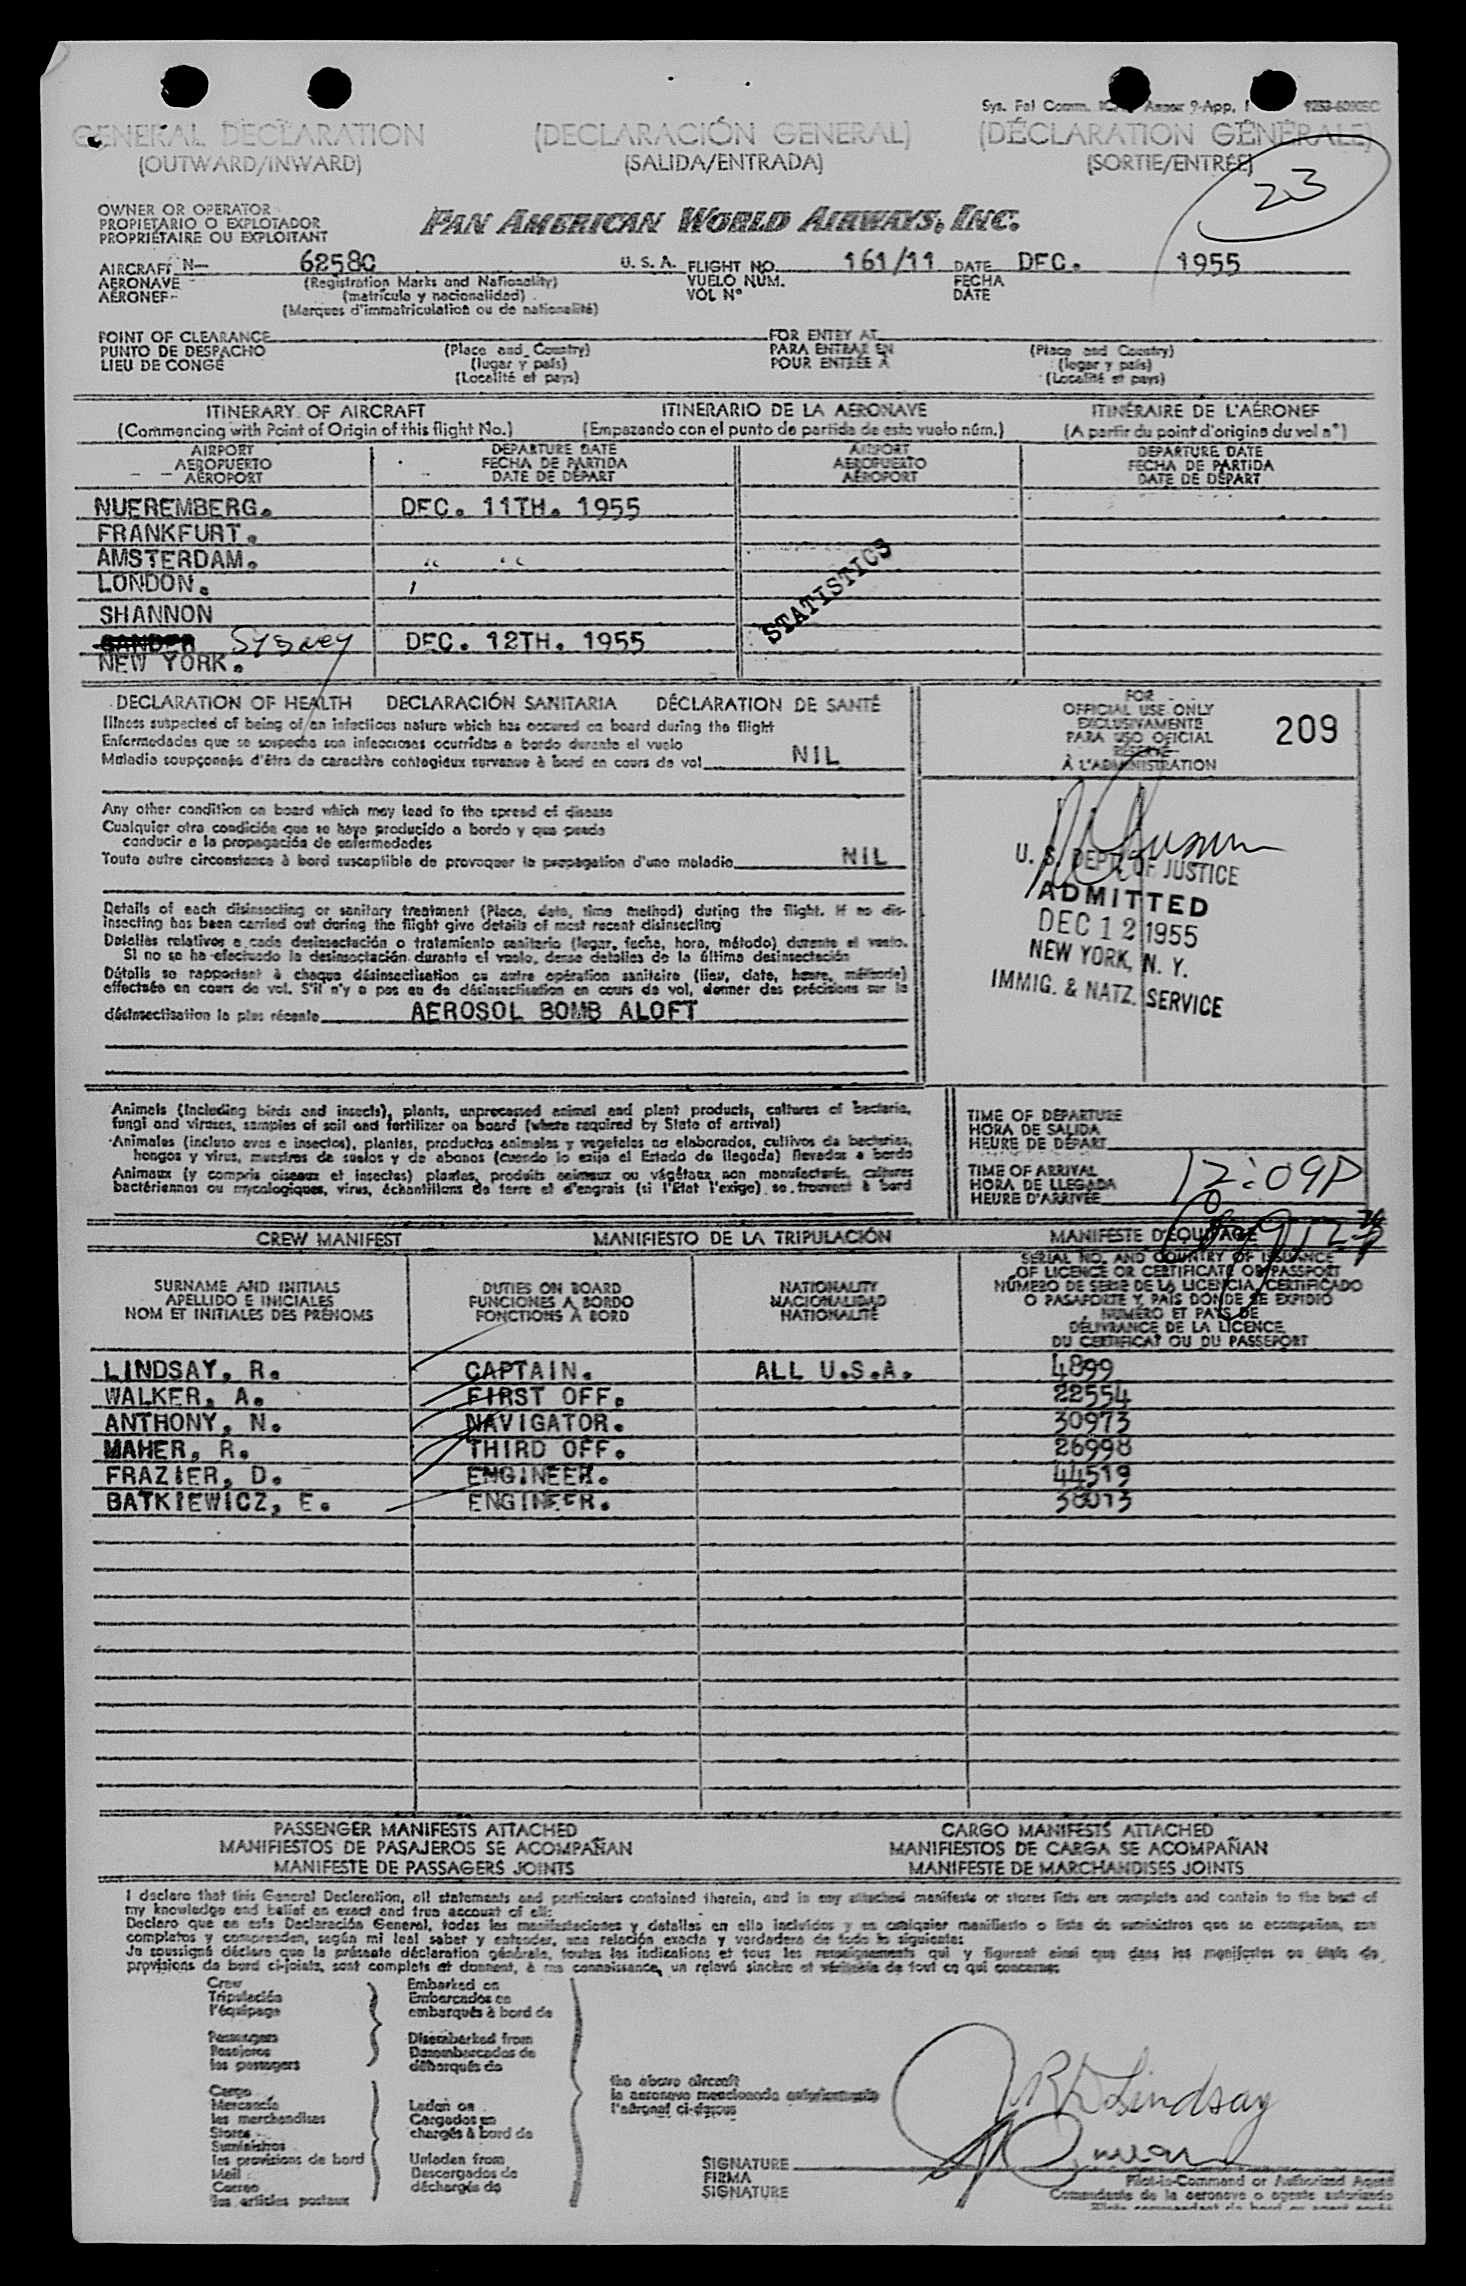 Sys. Fal Comm. Annex 9-App. 1
GENERAL DECLARATION (DECLARACIÓN GENERAL) (DÉCLARATION GÉNÉRALE)
(OUTWARD/INWARD) (SALIDA/ENTRADA) (SORTIE/ENTRÉE)
23
OWNER OR OPERATOR
PROPIETARIO O EXPLOTADOR
PROPRIÉTAIRE OU EXPLOITANT
PAN AMERICAN WORLD AIRWAYS, INC.
AIRCRAFT N- 6258C U. S. A. FLIGHT NO. 161/11 DATE DEC. 1955
AERONAVE (Registration Marks and Nationality) VUELO NÚM. FECHA
AÉRONEF (matrícula y nacionalidad) VOL Nº DATE
(Marques d'immatriculation ou de nationalité)
POINT OF CLEARANCE FOR ENTRY AT
PUNTO DE DESPACHO (Place and Country) PARA ENTRAR EN (Place and Country)
LIEU DE CONGÉ (lugar y país) POUR ENTRÉE A (lugar y país)
(Localité et pays) (Localité et pays)
ITINERARY OF AIRCRAFT ITINERARIO DE LA AERONAVE ITINÉRAIRE DE L'AÉRONEF
(Commencing with Point of Origin of this flight No.) (Empezando con el punto de partida de este vuelo núm.) (A partir du point d'origine du vol nº)
AIRPORT DEPARTURE DATE AIRPORT DEPARTURE DATE
AEROPUERTO FECHA DE PARTIDA AEROPUERTO FECHA DE PARTIDA
AÉROPORT DATE DE DÉPART AÉROPORT DATE DE DÉPART
NUEREMBERG. DEC. 11TH. 1955
FRANKFURT.
AMSTERDAM. " "
LONDON.
STATISTICS
SHANNON
GANDER Sysney DEC. 12TH. 1955
NEW YORK.
DECLARATION OF HEALTH DECLARACIÓN SANITARIA DÉCLARATION DE SANTÉ
Illness suspected of being of an infectious nature which has occured on board during the flight
Enfermedades que se sospecha son infecciosas ocurridas a bordo durante el vuelo
Maladie soupçonnée d'être de caractère contagieux survenue à bord en cours de vol NIL
FOR
OFFICIAL USE ONLY
EXCLUSIVAMENTE
PARA USO OFICIAL
RÉSERVÉ
À L'ADMINISTRATION
209
Any other condition on board which may lead to the spread of disease
Cualquier otra condición que se haya producido a bordo y que pueda
conducir a la propagación de enfermedades
Toute autre circonstance à bord susceptible de provoquer la propagation d'une maladie NIL
U. S. DEPT. OF JUSTICE
ADMITTED
DEC 12 1955
NEW YORK, N. Y.
IMMIG. & NATZ. SERVICE
Details of each disinsecting or sanitary treatment (Place, date, time method) during the flight. If no dis-
insecting has been carried out during the flight give details of most recent disinsecting
Detalles relativos a cada desinsectación o tratamiento sanitario (lugar, fecha, hora, método) durante el vuelo.
Si no se ha efectuado la desinsectación durante el vuelo, dense detalles de la última desinsectación
Détails se rapportant à chaque désinsectisation ou autre opération sanitaire (lieu, date, heure, méthode)
effectuée en cours de vol. S'il n'y a pas eu de désinsectisation en cours de vol, donner des précisions sur la
désinsectisation la plus récente AEROSOL BOMB ALOFT
Animals (including birds and insects), plants, unprocessed animal and plant products, cultures of bacteria,
fungi and viruses, samples of soil and fertilizer on board (where required by State of arrival)
Animales (incluso aves e insectos), plantas, productos animales y vegetales no elaborados, cultivos de bacterias,
hongos y virus, muestras de suelos y de abonos (cuando lo exija el Estado de llegada) llevados a bordo
Animaux (y compris oiseaux et insectes) plantes, produits animaux ou végétaux non manufacturés, cultures
bactériennes ou mycologiques, virus, échantillons de terre et d'engrais (si l'État l'exige) se trouvant à bord
TIME OF DEPARTURE
HORA DE SALIDA
HEURE DE DÉPART
TIME OF ARRIVAL
HORA DE LLEGADA
HEURE D'ARRIVÉE
12:09P
CREW MANIFEST MANIFIESTO DE LA TRIPULACIÓN MANIFESTE D'EQUIPAGE
SURNAME AND INITIALS DUTIES ON BOARD NATIONALITY SERIAL NO. AND COUNTRY OF ISSUANCE
APELLIDO E INICIALES FUNCIONES A BORDO NACIONALIDAD OF LICENCE OR CERTIFICATE OR PASSPORT
NOM ET INITIALES DES PRÉNOMS FONCTIONS À BORD NATIONALITÉ NÚMERO DE SERIE DE LA LICENCIA, CERTIFICADO
O PASAPORTE Y PAÍS DONDE SE EXPIDIÓ
NUMÉRO ET PAYS DE
DÉLIVRANCE DE LA LICENCE
DU CERTIFICAT OU DU PASSEPORT
LINDSAY, R. CAPTAIN. ALL U.S.A. 4899
WALKER, A. FIRST OFF. 22554
ANTHONY, N. NAVIGATOR. 30973
MAHER, R. THIRD OFF. 26998
FRAZIER, D. ENGINEER. 44519
BATKIEWICZ, E. ENGINEER. 38073
PASSENGER MANIFESTS ATTACHED CARGO MANIFESTS ATTACHED
MANIFIESTOS DE PASAJEROS SE ACOMPAÑAN MANIFIESTOS DE CARGA SE ACOMPAÑAN
MANIFESTE DE PASSAGERS JOINTS MANIFESTE DE MARCHANDISES JOINTS
I declare that this General Declaration, all statements and particulars contained therein, and in any attached manifests or stores lists are complete and contain to the best of
my knowledge and belief an exact and true account of all:
Declaro que en esta Declaración General, todas las manifestaciones y detalles en ella incluídos y en cualquier manifiesto o lista de suministros que se acompañen, son
completos y comprenden, según mi leal saber y entender, una relación exacta y verdadera de todo lo siguiente:
Je soussigné déclare que la présente déclaration générale, toutes les indications et tous les renseignements qui y figurent ainsi que dans les manifestes ou états de
provisions de bord ci-joints, sont complets et donnent, à ma connaissance, un relevé sincère et véritable de tout ce qui concerne:
Crew Embarked on
Tripulación Embarcados en
l'équipage embarqués à bord de
Passengers Disembarked from
Pasajeros Desembarcados de
les passagers débarqués de
the above aircraft
la aeronave mencionada anteriormente
l'aéronef ci-dessus
Cargo
Mercancía Laden on
les marchandises Cargados en
Stores chargés à bord de
Suministros
les provisions de bord Unladen from
Mail Descargados de
Correo déchargés de
les articles postaux
R D Lindsay
SIGNATURE
FIRMA
SIGNATURE
Pilot-in-Command or Authorized Agent
Comandante de la aeronave o agente autorizado